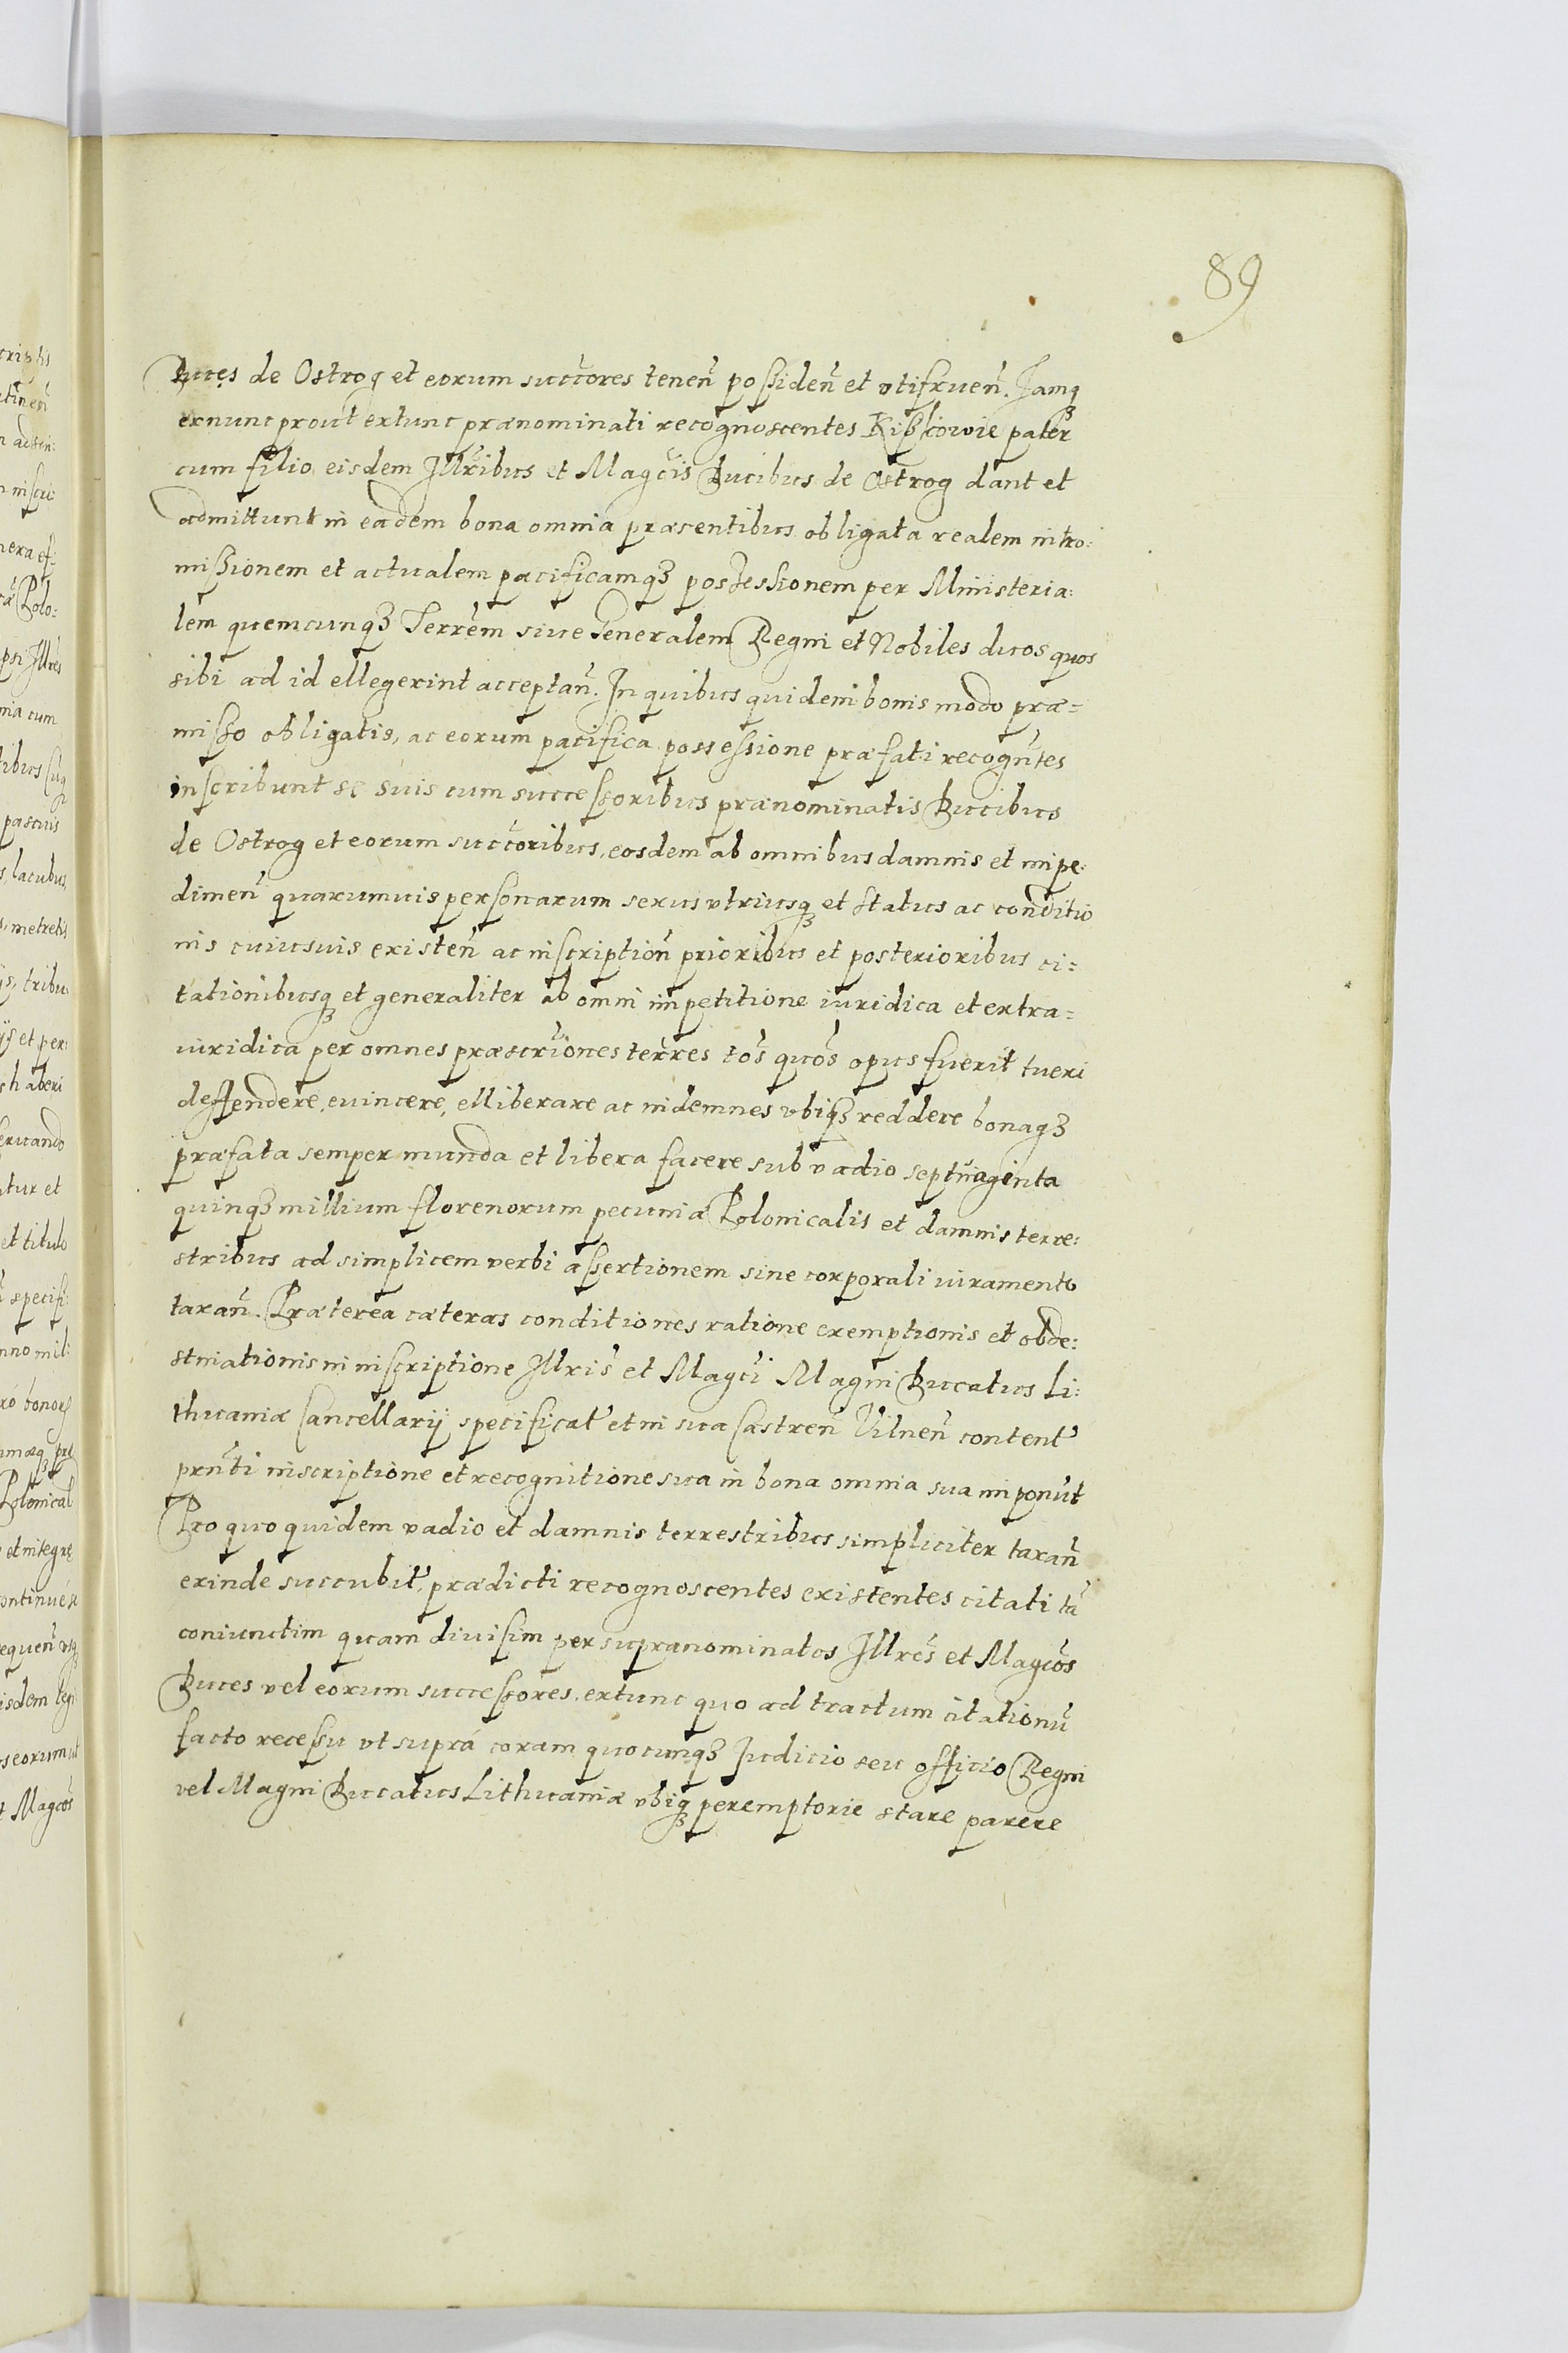 89
Duces de Ostrog et eorum succ̃ores tenen̄ possiden̄ et vtifruen̄. Jamq₃
exnunc prout extunc prænominati recognoscentes Kiszkowie pater
cum filio eisdem Ill̃ribus et Magc̃is Ducibus de Ostrog dant et
admittunt in eadem bona omnia præsentibus obligata realem intro:
missionem et actualem pacificamq₃ possessionem per Ministeria:
lem quemcunq₃ Terrẽm siue Generalem Regni et Nobiles duos quos
sibi ad id ellegerint acceptan̄. In quibus quidem bonis modo præ=
misso obligatis, ac eorum pacifica possessione præfati recogn̄tes
inscribunt se suis cum successoribus prænominatis Ducibus
de Ostrog et eorum succ̃oribus, eosdem ab omnibus damnis et impe:
dimen̄ quarumuis personarum sexus vtriusq₃ et status ac conditio
nis cuiusuis existen̄ ac inscription̄ prioribus et posterioribus ci=
tationibusq₃ et generaliter ab omni impetitione iuridica et extra=
iuridica per omnes præscrip̃ones terr̃es to͠s quo͠s opus fuerit tueri
deffendere, euincere, elliberare ac indemnes vbiq₃ reddere bonaq₃
præfata semper munda et libera facere sub vadio septuaginta
quinq₃ millium florenorum pecuniæ Polonicalis et damnis terre:
stribus ad simplicem verbi assertionem sine corporali iuramento
taxan̄. Præterea cæteras conditiones ratione exemptionis et obde:
stinationis in inscriptione Illris̃ et Magc̃i Magni Ducatus Li:
thuaniæ Cancellarij specificat̃ et in sua Castren̄ Vilnen̄ content̃
prn̄ti inscriptione et recognitione sua in bona omnia sua imponūt
Pro quo quidem vadio et damnis terrestribus simpliciter taxan̄
exinde succubit̃, prædicti recognoscentes existentes citati tā
coniunctim quam diuisim per supranominatos Illres̃ et Magc̃os
Duces vel eorum successores, extunc quo ad tractum citationū
facto recessu vt suprà coram quocunq₃ Judicio seu officio Regni
vel Magni Ducatus Lithuaniæ vbiq₃ peremptorie stare parere